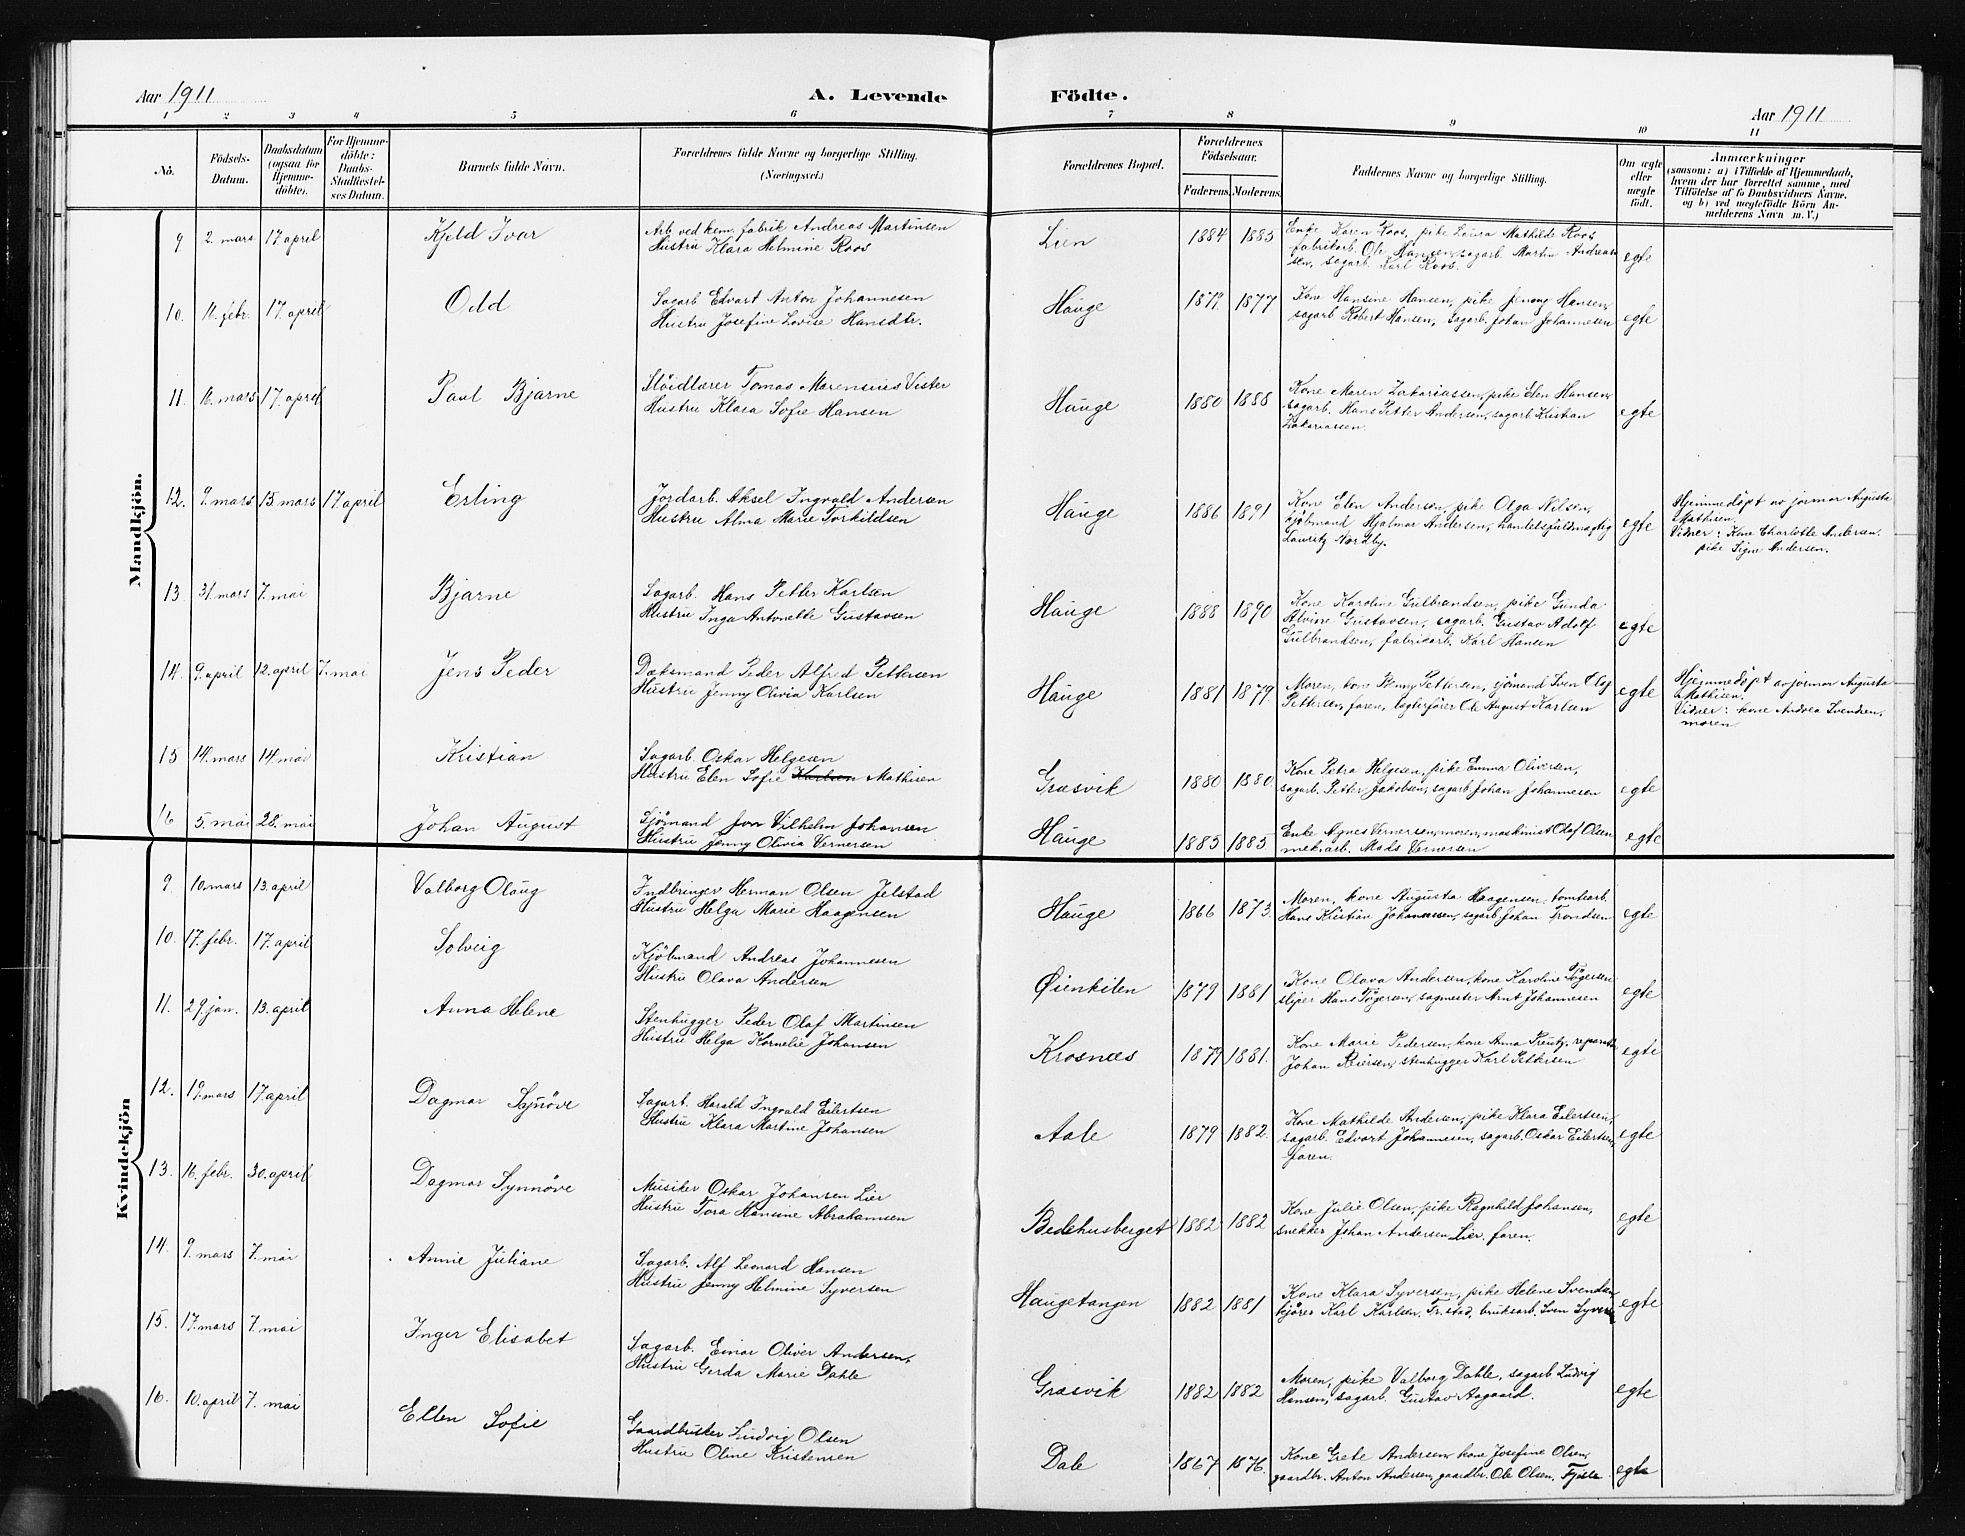 Aar 1911
A. Levende Födte.
Aar 1911
1 2 3 4 5 6 7 8 9 10 11
No.
Födsels-
Datum.
Daabsdatum
(ogsaa for
Hjemme-
döbte).
For Hjemme-
döbte:
Daabs-
Stadfæstel-
ses Datum.
Barnets fulde Navn.
Forældrenes fulde Navne og borgerlige Stilling.
(Næringsvei.)
Forældrenes Bopæl.
Forældrenes
Födselsaar.
Faderens. Moderens.
Faddernes Navne og borgerlige Stilling.
Om ægte
eller
uægte
født.
Anmærkninger
(saasom: a) i Tilfælde af Hjemmedaab,
hvem der har forrettet samme, med
Tilföielse af to Daabsvidners Navne,
og b) ved uægtefödte Börn An-
melderens Navn m. V.)
Mandkjön.
9 2. mars 17 april Kjeld Ivar
Arb ved kem. fabrik Andreas Martinsen
Hustru Klara Helmine Roos
Lien 1884 1885
Enke Karen Roos, pike Laura Mathilde Roos
fabrikarb. Ole Hansen, sagarb. Martin Andrea-
sen, sagarb. Karl Roos.
egte
10. 16. febr. 17. april Odd
Sagarb Edvart Anton Johannesen
Hustru Josefine Lovise Hansdtr.
Hauge 1879. 1877
Kone Hansine Hansen, pike Jenny Hansen,
sagarb Robert Hansen, sagarb. Johan Johannesen
egte
11. 16. mars 17. april Paul Bjarne
Slöidlærer Tomas Marensius Vister
Hustru Klara Sofie Hansen
Hauge 1880 1888
Kone Maren Zakariassen, pike Elen Hansen,
sagarb. Hans Petter Andersen, sagarb Kristian
Zakariassen.
egte
12. 9. mars 15. mars 17. april Erling
Jordarb. Aksel Ingvald Andersen
Hustru Alma Marie Torkildsen
Hauge 1886 1891
Kone Elen Andersen, pike Olga Nilsen,
kjöbmand Hjalmar Andersen, handelsfuldmægtig
Lauritz Nordby.
egte
Hjemmedöpt av jormor Augusta
Mathisen.
Vidner: Kone Charlotte Andersen.
pike Signe Andersen.
13. 31. mars 7. mai Bjarne
Sagarb. Hans Petter Karlsen
Hustru Inga Antonette Gustavsen
Hauge 1888 1890
Kone Karoline Gulbrandsen, pike Gunda
Alvine Gustavsen, sagarb. Gustav Adolf
Gulbrandsen, fabrikarb. Karl Hansen
egte
14. 9. april 12. april 7. mai Jens Peder
Dæksmand Peder Alfred Pettersen
Hustru Jenny Olivia Karlsen
Hauge 1881 1879.
Moren, kone Benny Pettersen, sjömand Sven Olaf
Pettersen, faren, lægterfører Ole August Karlsen
egte
Hjemmedöpt av jormor Augusta
Mathisen.
Vidner: kone Andrea Svendsen,
moren
15 14. mars 14. mai Kristian
Sagarb. Oskar Helgesen
Hustru Elen Sofie Karlsen Mathisen
Græsvik 1880 1880
Kone Petra Helgesen, pike Emma Oliversen,
sagarb. Petter Jakobsen, sagarb. Johan Johannesen
egte
16 5. mai 28. mai Johan August
Sjömand Vilhelm Johansen
Hustru Jenny Olivia Vernersen
Hauge 1885 1885
Enke Agnes Vernersen, moren, maskinist Olaf Olsen
mek. arb. Mads Vernersen
egte
Kvindekjön
9. 10. mars 13. april Valborg Olaug
Indbringer Herman Olsen Jelstad
Hustru Helga Marie Haagensen
Hauge 1866 1873.
Moren, kone Augusta Haagensen, tomtearb.
Hans Kristian Johannesen, sagarb Johan Trondsen
egte
10. 17. febr. 17. april Solveig
Kjöbmand Andreas Johannesen
Hustru Olava Andersen
Øienkilen 1879 1881
Kone Olava Andersen, kone Karoline Tögersen
sliper Hans Tögersen, sagmester Arnt Johannesen
egte
11. 29. jan. 13. april Anna Helene
Stenhugger Peder Olaf Martinsen
Hustru Helga Kornelie Johansen
Krosnæs 1879 1881.
Kone Marie Pedersen, kone Anna Preutz,
Johan Reiersen, stenhugger Karl Pettersen
egte
12. 19. mars 17. april Dagmar Synöve
Sagarb. Harald Ingvald Eilertsen
Hustru Klara Martine Johansen
Aale 1879 1882.
Kone Mathilde Andersen, pike Klara Eilertsen,
sagarb. Edvart Johannesen, sagarb. Oskar Eilertsen,
faren.
egte
13. 16. febr. 30. april Dagmar Synnöve
Musiker Oskar Johansen Lier
Hustru Tora Hansine Abrahamsen
Bedehusberget 1882 1882
Kone Julie Olsen, pike Ragnhild Johansen,
snekker Johan Andersen Lier, faren.
egte
14. 9. mars 7. mai Annie Juliane
Sagarb. Alf Leonard Hansen
Hustru Jenny Helmine Syversen
Haugetangen 1882 1881
Kone Klara Syversen, pike Helene Svendsen
kjörer Karl Karlsen, Tr.stad, bruksarb. Sven Syversen
egte
15. 17. mars 7. mai Inger Elisabet
Sagarb. Einar Oliver Andersen,
Hustru Gerda Marie Dahle
Græsvik 1882 1882
Moren, pike Valborg Dahle, sagarb Ludvig
Hansen, sagarb. Gustav Aagaard.
egte
16. 10. april 7. mai Ellen Sofie
Gaardbruker Ludvig Olsen
Hustru Oline Kristensen
Dale 1867 1876.
Kone Grete Andersen, kone Josefine Olsen,
gaardbr. Anton Andersen, gaardbr. Ole Olsen,
egte